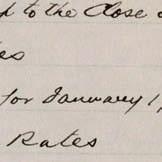 to the Close
for January 1,
Rates